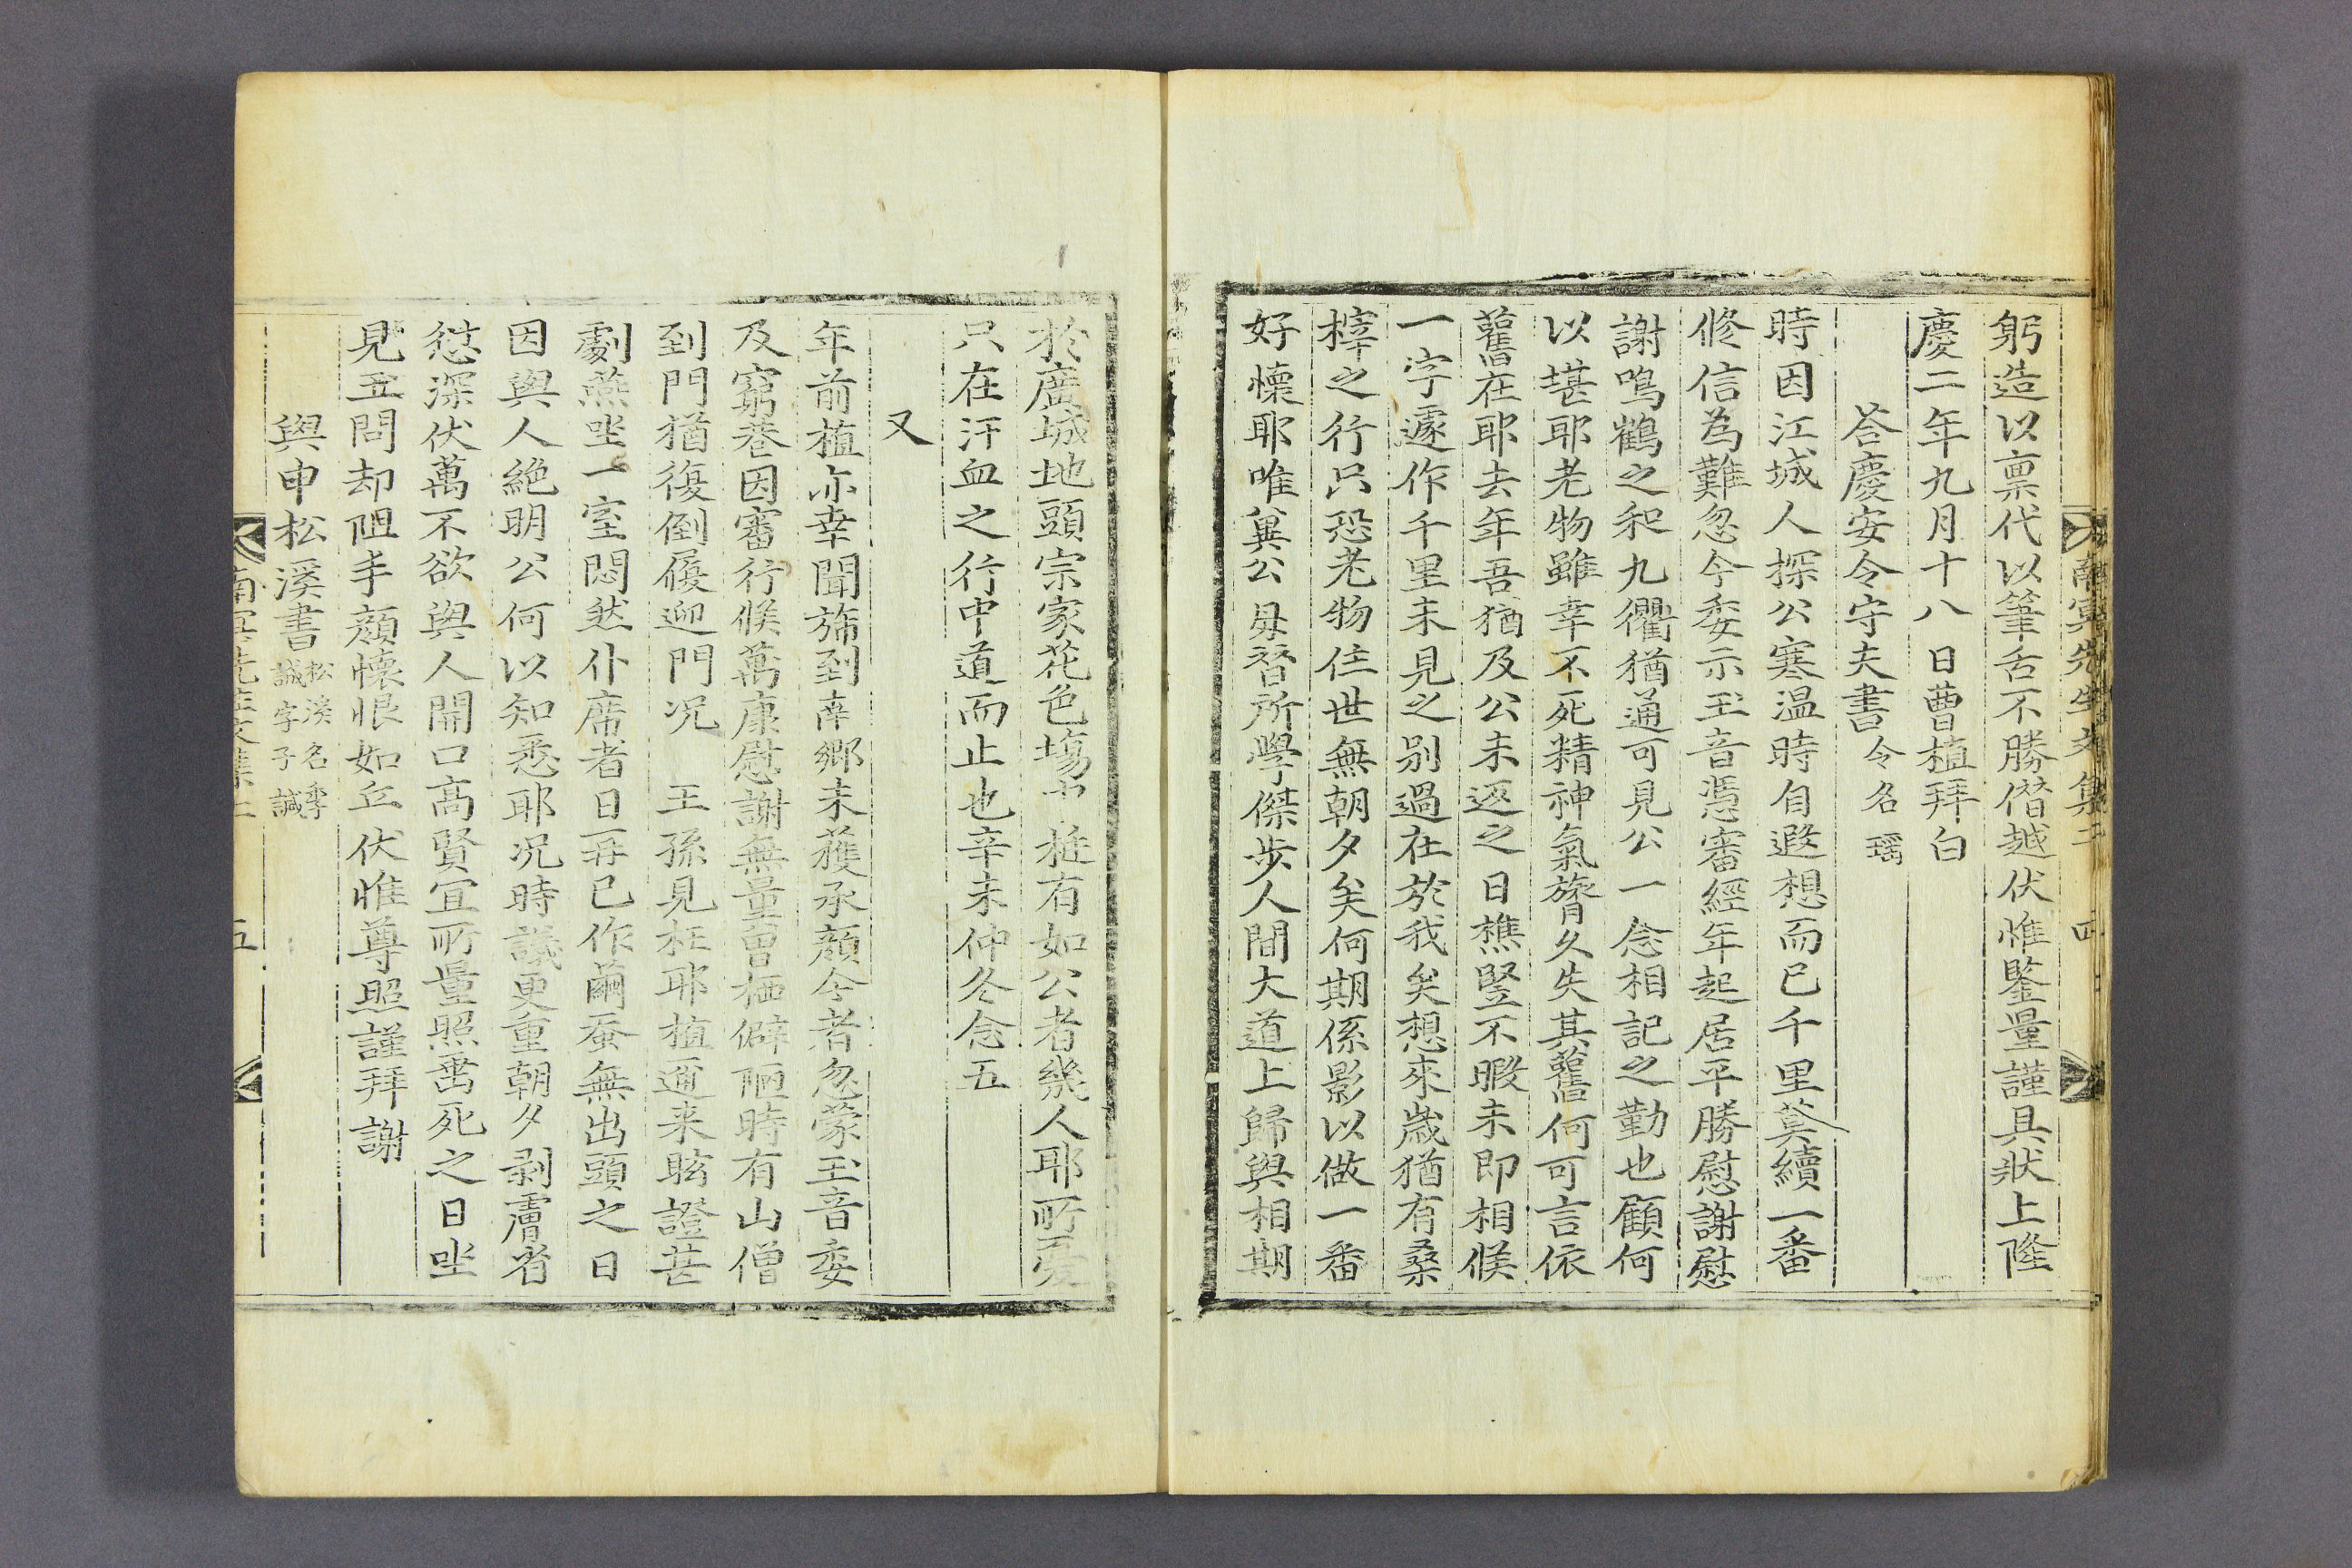 南冥先生文集二 四
躬造以禀代以筆舌不勝僭越伏惟鑒量謹具狀上隆
慶二年九月十八日曹植拜白
荅慶安令守夫書令名瑶
時因江城人探公寒温時自遐想而已千里莫續一番
修信為難忽今委示玉音憑審經年起居平勝慰謝慰
謝鳴鶴之和九衢猶通可見公一念相記之勤也顧何
以堪耶老物雖幸不死精神氣膂久失其舊何可言依
舊在耶去年吾猶及公未返之日樵竪不暇未即相候
一字遽作千里未見之别過在於我矣想來歲猶有桑
梓之行只恐老物住世無朝夕矣何期係影以做一番
好懐耶唯冀公毋替所學傑步人間大道上歸與相期
於廣城地頭宗家花色塲中 挺有如公者幾人耶所愛
只在汗血之行中道而止也辛未仲冬念五
又
年前植亦幸聞旆到南鄉未獲承顔今者忽蒙玉音委
及窮巷因審行候萬康慰謝無量曽栖僻陋時有山僧
到門猶復倒屐迎門况 王孫見枉耶植邇来眩證甚
劇燕坐一室悶然仆席者日再已作繭蚕無出頭之日
因與人絶明公何以知悉耶况時議更重朝夕剥膚省
愆深伏萬不欲與人開口高賢宜所量照耑死之日坐
見五問却阻手顔懐恨如丘伏惟尊照謹拜謝
與申松溪書松溪名季
誠字子諴
南冥先生文集二 五